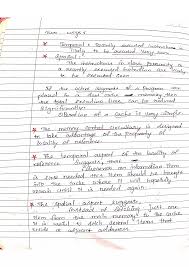 Two ways
* Temporal : Recently executed instruction is likely to be executed very soon
* Spatial :
The instructions in close proximity to recently executed instruction are likely to be executed soon
If the active segments of a program are placed in a cache memory then the total execution time can be reduced significantly
Operation of a cache is very simple
* The memory control circuitry is designed to take advantage of the property of locality of reference
* The temporal aspect of the locality of reference suggests that
whenever information item is first needed this item should be brought into the cache where it will hopefully remain until it is needed again
* The spatial aspect suggests
instead of fetching just one item from the main memory to the cache it is useful to fetch several items that reside at adjacent addresses